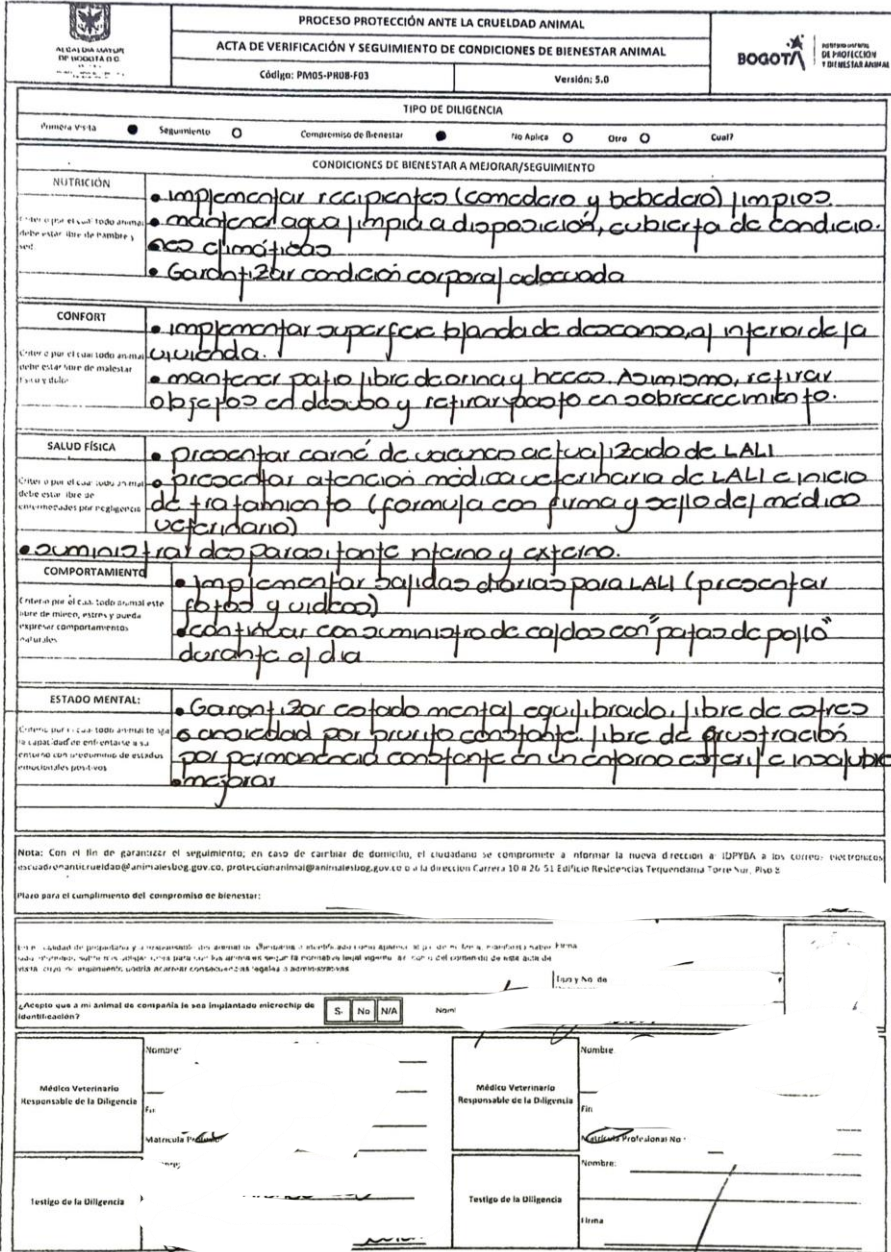 ALCALDIA MAYOR
DE BOGOTÁ D.C.
PROCESO PROTECCIÓN ANTE LA CRUELDAD ANIMAL
ACTA DE VERIFICACIÓN Y SEGUIMIENTO DE CONDICIONES DE BIENESTAR ANIMAL
Código: PM05-PR08-F03
Versión: 5.0
BOGOTÁ
DE PROTECCIÓN
Y BIENESTAR ANIMAL
TIPO DE DILIGENCIA
Primera Visita Seguimiento Compromiso de Bienestar No Aplica Otro Cual?
CONDICIONES DE BIENESTAR A MEJORAR/SEGUIMIENTO
NUTRICIÓN
Criterio por el cual todo animal
debe estar libre de hambre y
sed.
• implementar recipientes (comedero y bebedero) limpios.
• mantener agua limpia a disposición, cubierta de condicio-
nes climáticas
• Garantizar condición corporal adecuada
CONFORT
Criterio por el cual todo animal
debe estar libre de malestar
físico y dolor
• implementar superficie blanda de descanso, al interior de la
vivienda.
• mantener patio libre de orina y heces. Asimismo, retirar
objetos en desuso y retirar pasto en sobrecrecimiento.
SALUD FÍSICA
Criterio por el cual todo animal
debe estar libre de
enfermedades por negligencia
• presentar carné de vacunas actualizado de LALI
• presentar atención médica veterinaria de LALI e inicio
de tratamiento (formula con firma y sello del médico
veterinario)
• suministrar desparasitante interno y externo.
COMPORTAMIENTO
Criterio por el cual todo animal este
libre de miedo, estres y pueda
expresar comportamientos
naturales
• Implementar salidas diarias para LALI (presentar
fotos y videos)
• continuar con suministro de caldos con "patas de pollo"
durante el dia
ESTADO MENTAL:
Criterio por el cual todo animal tenga
la capacidad de enfrentarse a su
entorno con predominio de estados
emocionales positivos
• Garantizar estado mental equilibrado, libre de estres
o ansiedad por prurito constante. libre de frustración
por permanencia constante en un entorno esteril e insalubre
• mejorar
Nota: Con el fin de garantizar el seguimiento; en caso de cambiar de domicilio, el ciudadano se compromete a informar la nueva dirección al IDPYBA a los correos electronicos
escuadronanticrueldad@animalesbog.gov.co, proteccionanimal@animalesbog.gov.co o a la dirección Carrera 10 # 26 51 Edificio Residencias Tequendama Torre Sur, Piso 8
Plazo para el cumplimiento del compromiso de bienestar:
Firma
Tipo y No. de
¿Acepto que a mi animal de compañía le sea implantado microchip de
identificación?
Si No N/A
Médico Veterinario
Responsable de la Diligencia
Nombre:
Matricula
Médico Veterinario
Responsable de la Diligencia
Nombre
Matrícula Profesional No
Testigo de la Diligencia
Testigo de la Diligencia
Nombre:
Firma